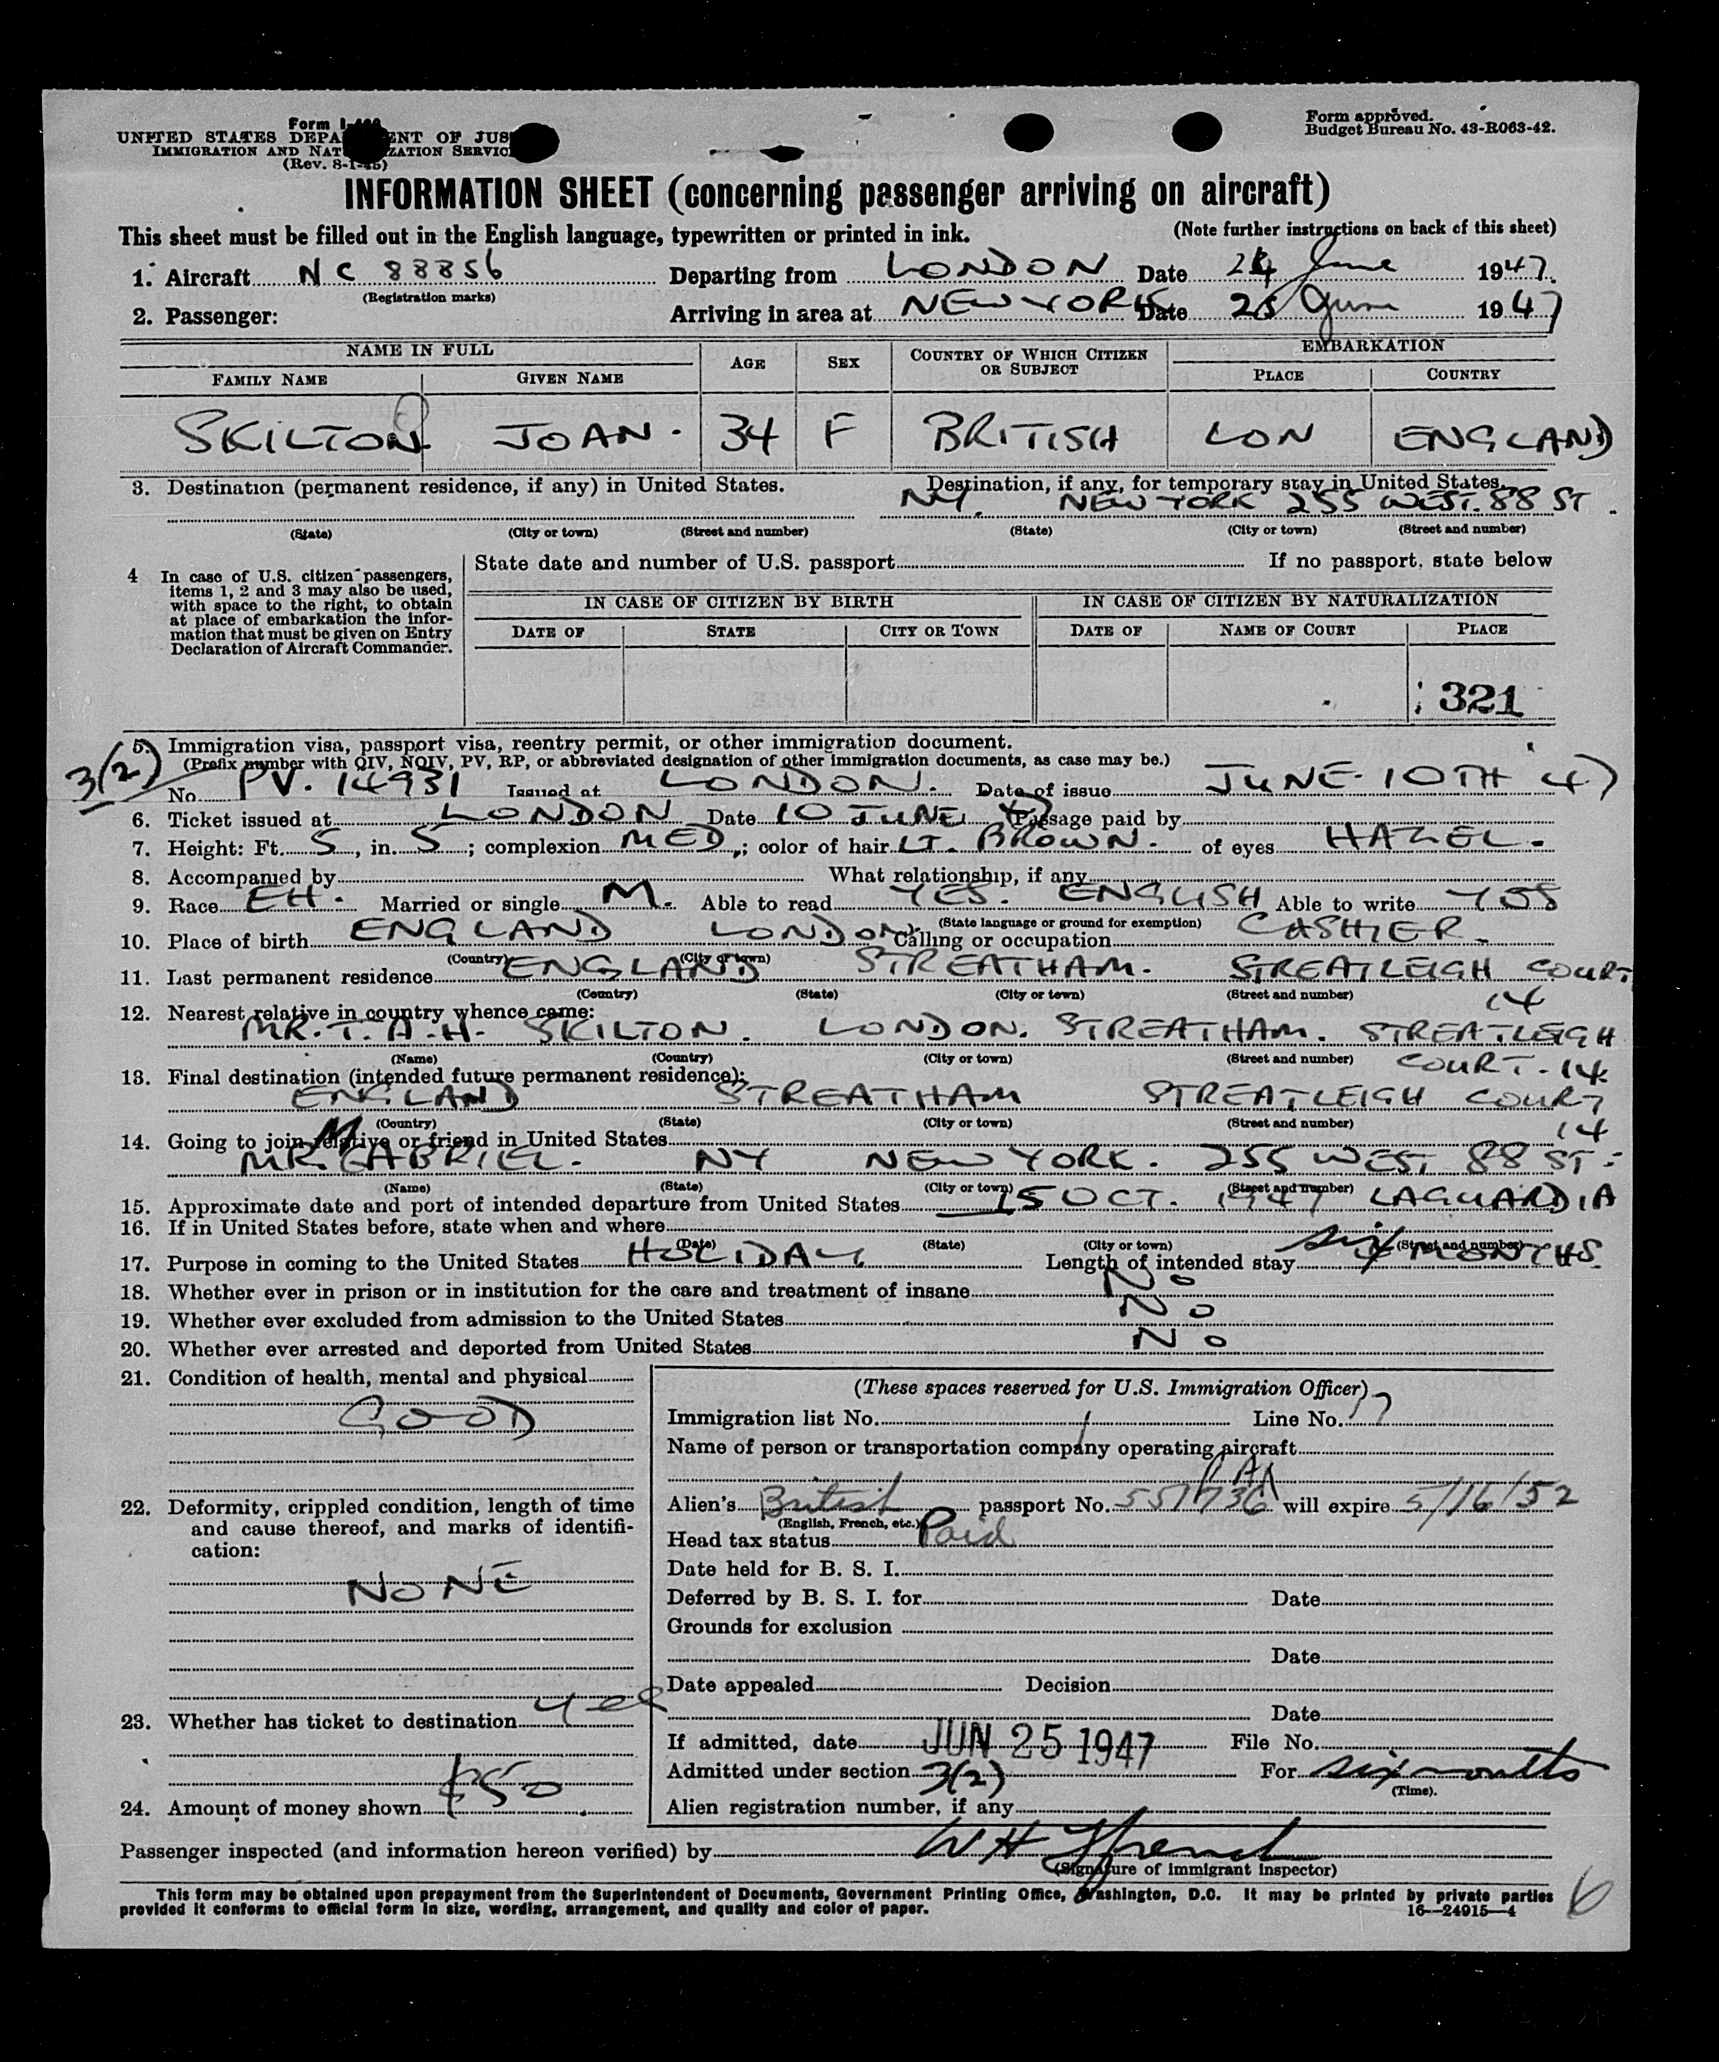 Form I-466
UNITED STATES DEPA ENT OF JUS
IMMIGRATION AND NAT ZATION SERVIC
(Rev. 8-1-45)
Form approved.
Budget Bureau No. 43-R063-42.
INFORMATION SHEET (concerning passenger arriving on aircraft)
This sheet must be filled out in the English language, typewritten or printed in ink.
(Note further instructions on back of this sheet)
1. Aircraft NC 88856 Departing from LONDON Date 24 June 1947.
(Registration marks)
2. Passenger: Arriving in area at NEW YORK Date 25 June 1947
NAME IN FULL AGE SEX COUNTRY OF WHICH CITIZEN OR SUBJECT EMBARKATION
FAMILY NAME GIVEN NAME PLACE COUNTRY
SKILTON JOAN. 34 F BRITISH LON ENGLAND
3. Destination (permanent residence, if any) in United States. Destination, if any, for temporary stay in United States.
NY. NEW YORK 255 WEST. 88 ST.
(State) (City or town) (Street and number) (State) (City or town) (Street and number)
4 In case of U.S. citizen passengers,
items 1, 2 and 3 may also be used,
with space to the right, to obtain
at place of embarkation the infor-
mation that must be given on Entry
Declaration of Aircraft Commander.
State date and number of U.S. passport If no passport, state below
IN CASE OF CITIZEN BY BIRTH IN CASE OF CITIZEN BY NATURALIZATION
DATE OF STATE CITY OR TOWN DATE OF NAME OF COURT PLACE
321
5. Immigration visa, passport visa, reentry permit, or other immigration document.
3(2) (Prefix number with QIV, NQIV, PV, RP, or abbreviated designation of other immigration documents, as case may be.)
No. PV. 14931 Issued at LONDON. Date of issue JUNE. 10TH 47
6. Ticket issued at LONDON Date 10 JUNE 47 Passage paid by
7. Height: Ft. 5, in. 5; complexion MED.; color of hair LT. BROWN. of eyes HAZEL.
8. Accompanied by What relationship, if any
9. Race EH. Married or single M. Able to read YES. ENGLISH Able to write YES
(State language or ground for exemption)
10. Place of birth ENGLAND LONDON. Calling or occupation CASHIER.
(Country) (City or town)
11. Last permanent residence ENGLAND STREATHAM. STREATLEIGH COURT
(Country) (State) (City or town) (Street and number) 14
12. Nearest relative in country whence came:
MR. T. A. H. SKILTON. LONDON. STREATHAM. STREATLEIGH
(Name) (Country) (City or town) (Street and number) COURT. 14.
13. Final destination (intended future permanent residence):
ENGLAND STREATHAM STREATLEIGH COURT
(Country) (State) (City or town) (Street and number) 14
14. Going to join relative or friend in United States
MR. GABRIEL. NY NEW YORK. 255 WEST 88 ST.
(Name) (State) (City or town) (Street and number)
15. Approximate date and port of intended departure from United States 15 OCT. 1947 LAGUARDIA
16. If in United States before, state when and where
(Date) (State) (City or town) (Street and number)
17. Purpose in coming to the United States HOLIDAY. Length of intended stay six MONTHS.
18. Whether ever in prison or in institution for the care and treatment of insane No
19. Whether ever excluded from admission to the United States No
20. Whether ever arrested and deported from United States No
21. Condition of health, mental and physical
GOOD
22. Deformity, crippled condition, length of time
and cause thereof, and marks of identifi-
cation:
NONE
23. Whether has ticket to destination yes
24. Amount of money shown $50
(These spaces reserved for U.S. Immigration Officer)
Immigration list No. 1 Line No. 17
Name of person or transportation company operating aircraft
PAA
Alien's British passport No. 551736 will expire 5/16/52
(English, French, etc.)
Head tax status Paid
Date held for B. S. I.
Deferred by B. S. I. for Date
Grounds for exclusion
Date
Date appealed Decision
Date
If admitted, date JUN 25 1947 File No.
Admitted under section 3(2) For six months
(Time).
Alien registration number, if any
Passenger inspected (and information hereon verified) by W H French
(Signature of immigrant inspector)
This form may be obtained upon prepayment from the Superintendent of Documents, Government Printing Office, Washington, D.C. It may be printed by private parties
provided it conforms to official form in size, wording, arrangement, and quality and color of paper.
16—24915—4
6